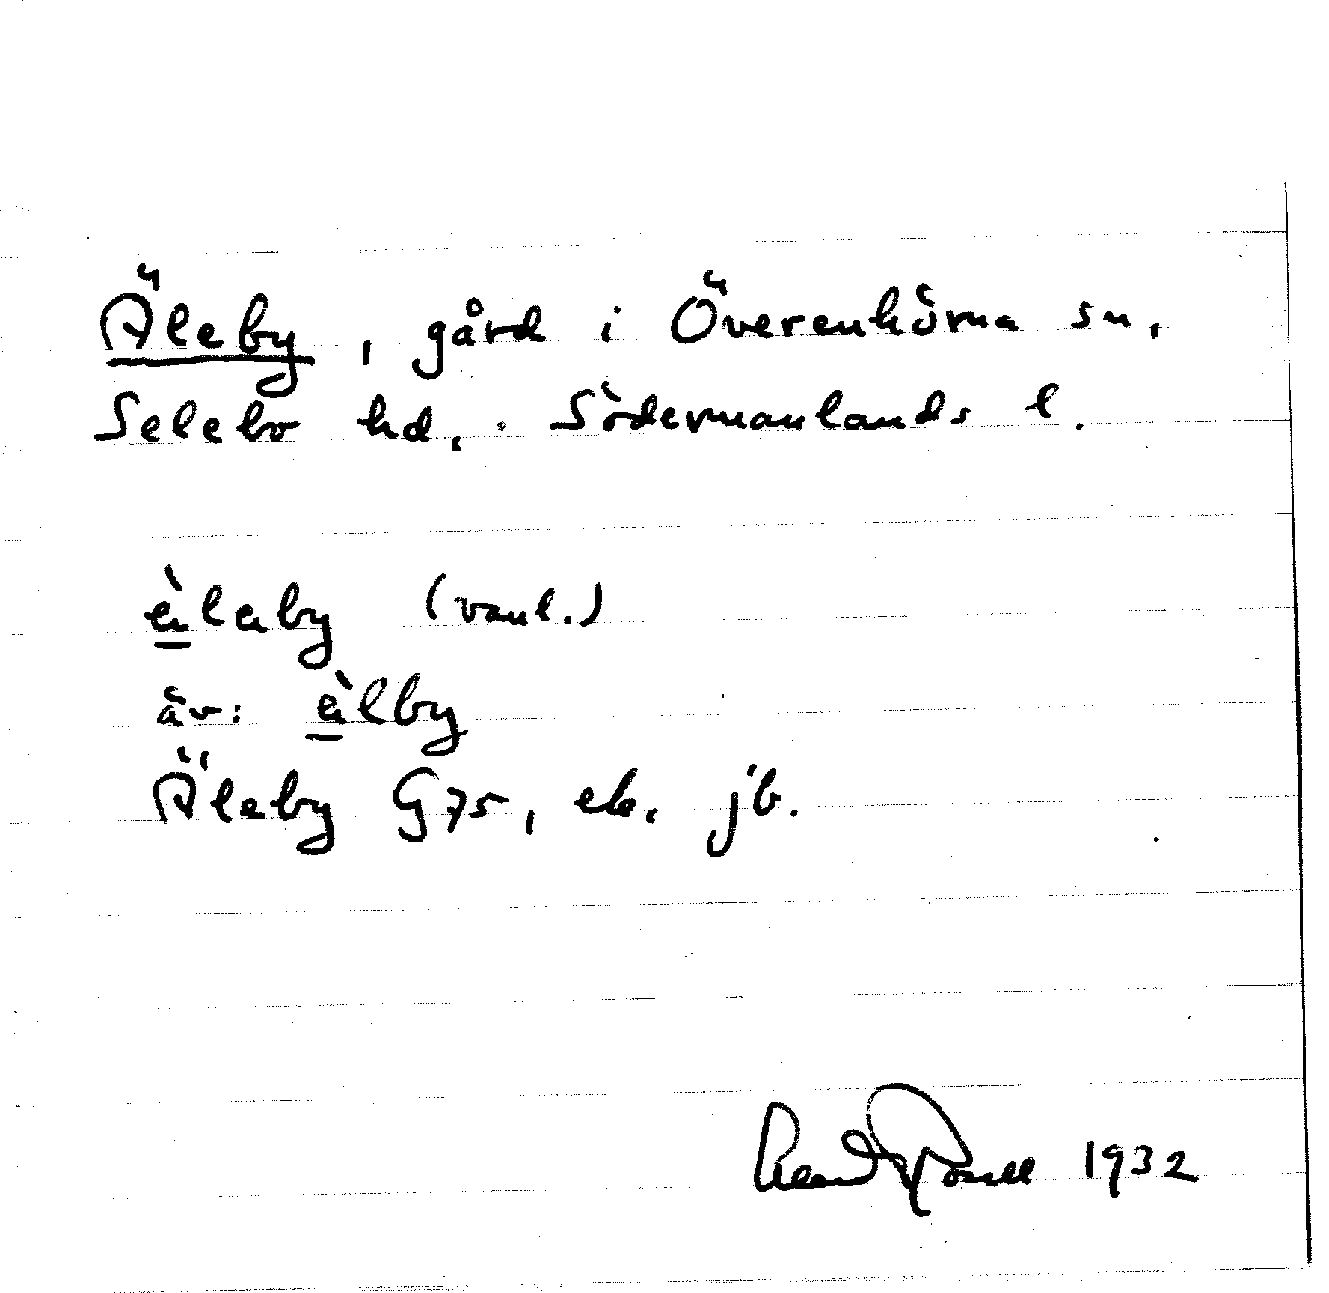 Äleby, gård i Överenhörna sn,
Selebo hd, Södermanlands l.
ä̀leby (vanl.)
äv: ä̀lby
Äleby G75, ek. jb.
1932